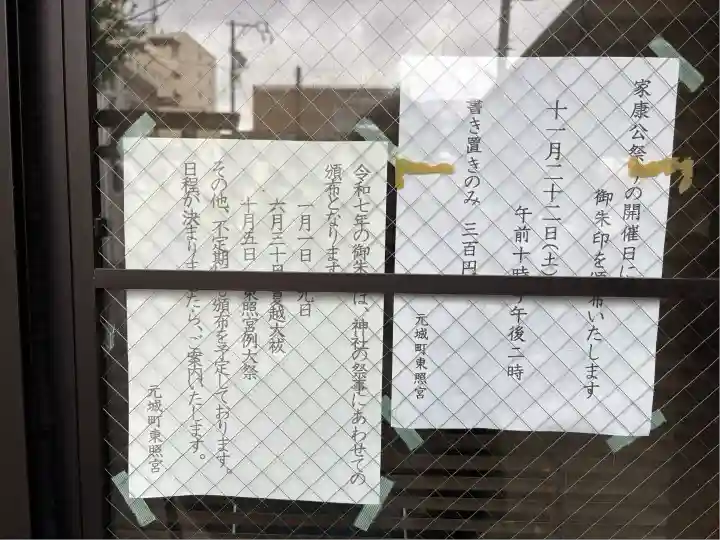 家康公祭 の開催日に
御朱印を頒布いたします
十一月二十二日(土)
午前十時 午後二時
書き置きのみ 三百円
元城町東照宮
令和七年の御朱 は、神社の祭事にあわせての
頒布となります
一月一日 元日
六月三十日 夏越大祓
十月五日 東照宮例大祭
その他、不定期 も頒布を予定しております。
日程が決まりましたら、ご案内いたします。
元城町東照宮